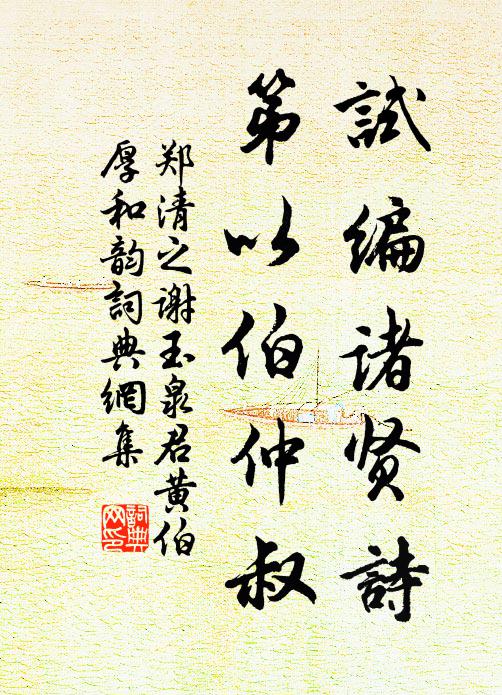 試编诸贤詩
第以伯仲叔
郑清之谢玉泉君黄伯
厚和韵詞典網集
詞典
网印